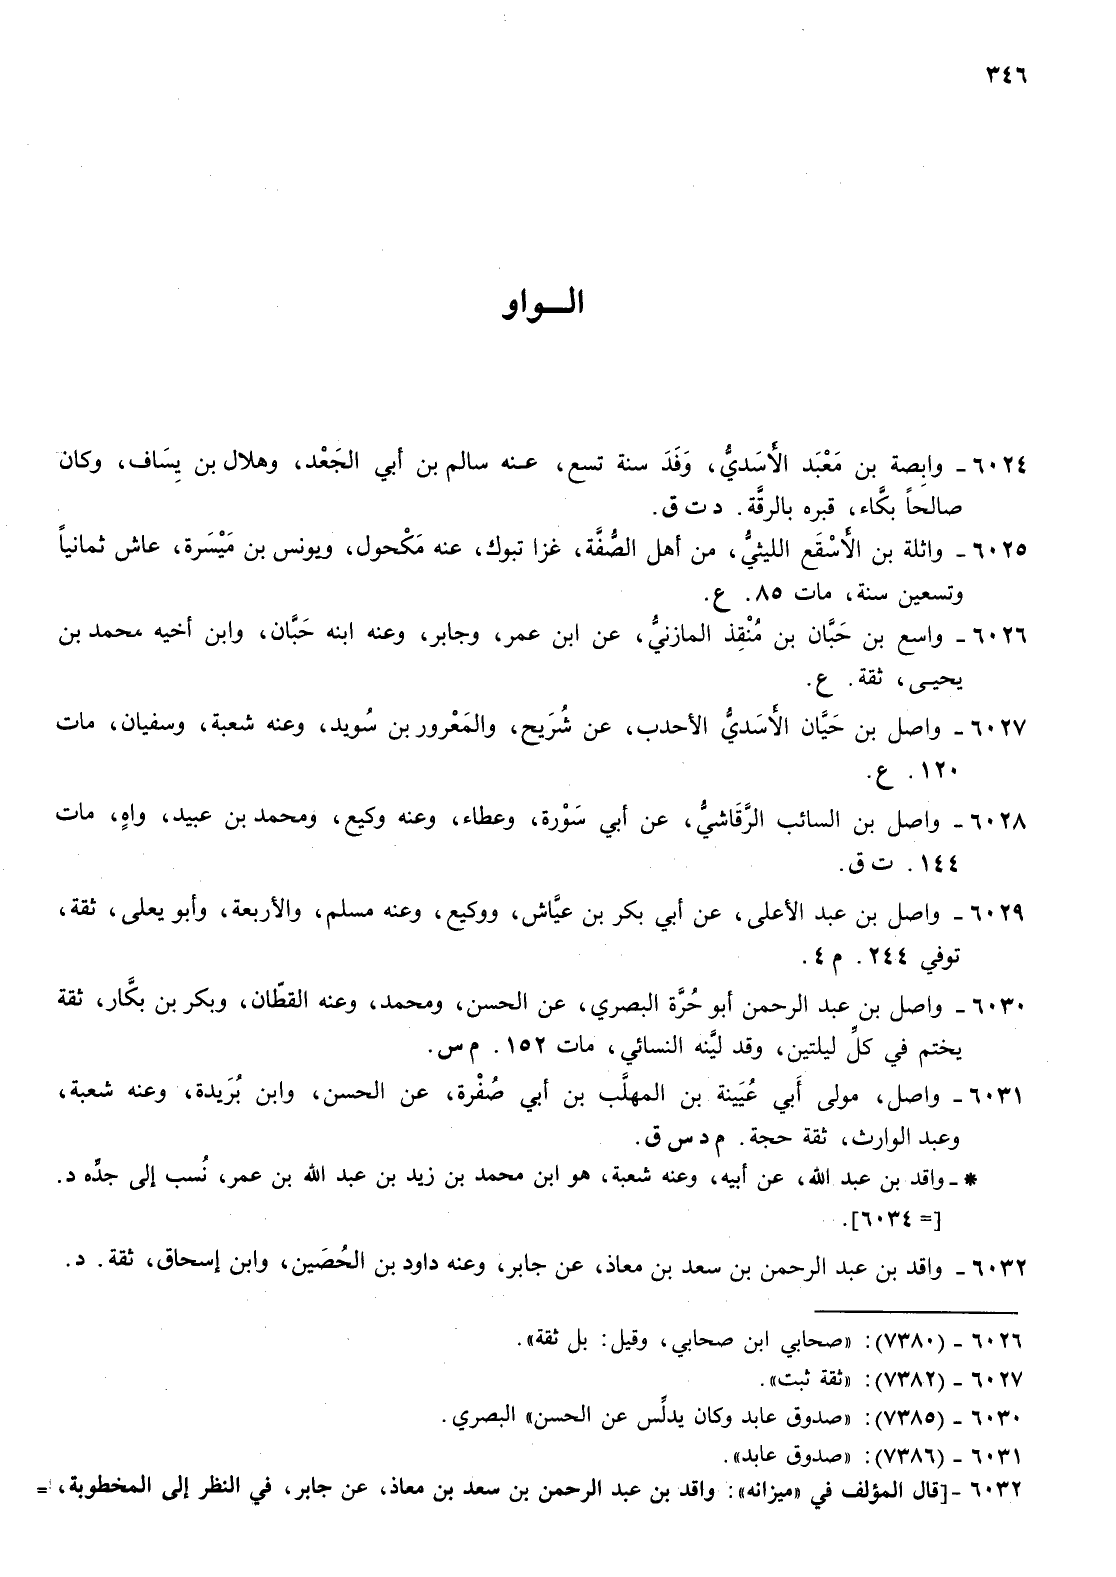 ٣٤٦
الـــواو
٦٠٢٤ - وابِصة بن مَعْبَد الأَسَديُّ، وَفَدَ سنة تسع، عـنه سالم بن أبي الجَعْد، وهلال بن يِسَاف، وكان
صالحاً بكَّاء، قبره بالرقَّة. د ت ق.
٦٠٢٥ - واثلة بن الأَسْقَع الليثيُّ، من أهل الصُّفَّة، غزا تبوك، عنه مَكْحول، ويونس بن مَيْسَرة، عاش ثمانياً
وتسعين سنة، مات ٨٥. ع.
٦٠٢٦ - واسع بن حَبَّان بن مُنْقِذ المازنيُّ، عن ابن عمر، وجابر، وعنه ابنه حَبَّان، وابن أخيه محمد بن
يحيـى، ثقة. ع.
٦٠٢٧ - واصل بن حَيَّان الأَسَديُّ الأحدب، عن شُرَيح، والمَعْرور بن سُويد، وعنه شعبة، وسفيان، مات
١٢٠. ع.
٦٠٢٨ - واصل بن السائب الرَّقَاشيُّ، عن أبي سَوْرة، وعطاء، وعنه وكيع، ومحمد بن عبيد، واهٍ، مات
١٤٤. ت ق.
٦٠٢٩ - واصل بن عبد الأعلى، عن أبي بكر بن عيَّاش، ووكيع، وعنه مسلم، والأربعة، وأبو يعلى، ثقة،
توفي ٢٤٤. م ٤.
٦٠٣٠ - واصل بن عبد الرحمن أبو حُرَّة البصري، عن الحسن، ومحمد، وعنه القطّان، وبكر بن بكَّار، ثقة
يختم في كلِّ ليلتين، وقد ليَّنه النسائي، مات ١٥٢. م س.
٦٠٣١ - واصل، مولى أَبي عُيَينة بن المهلَّب بن أبي صُفْرة، عن الحسن، وابن بُرَيدة، وعنه شعبة،
وعبد الوارث، ثقة حجة. م د س ق.
* - واقد بن عبد الله، عن أبيه، وعنه شعبة، هو ابن محمد بن زيد بن عبد الله بن عمر، نُسب إلى جدِّه د.
[= ٦٠٣٤].
٦٠٣٢ - واقد بن عبد الرحمن بن سعد بن معاذ، عن جابر، وعنه داود بن الحُصَين، وابن إسحاق، ثقة. د.
٦٠٢٦ - (٧٣٨٠): «صحابي ابن صحابي، وقيل: بل ثقة».
٦٠٢٧ - (٧٣٨٢): «ثقة ثبت».
٦٠٣٠ - (٧٣٨٥): «صدوق عابد وكان يدلِّس عن الحسن» البصري.
٦٠٣١ - (٧٣٨٦): «صدوق عابد».
٦٠٣٢ - [قال المؤلف في «ميزانه»: واقد بن عبد الرحمن بن سعد بن معاذ، عن جابر، في النظر إلى المخطوبة، =